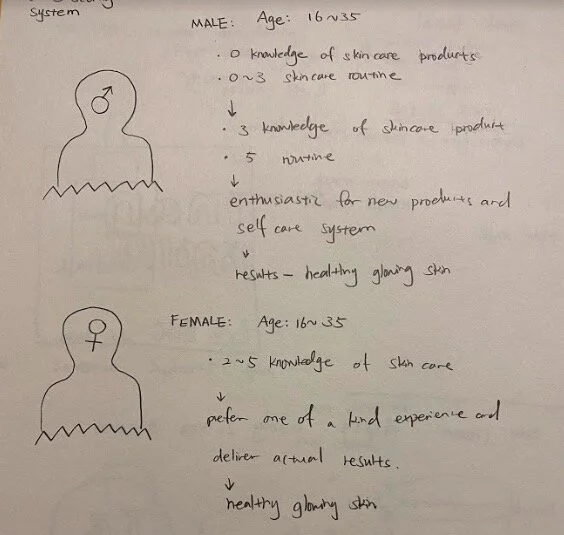 System
MALE: Age: 16~35
· 0 knowledge of skincare products
· 0~3 skincare routine
↓
· 3 knowledge of skincare product
· 5 routine
↓
enthusiastic for new products and
self care system
↓
results - healthy glowing skin
FEMALE: Age: 16~35
· 2~5 knowledge of skin care
↓
prefer one of a kind experience and
deliver actual results.
↓
healthy glowing skin